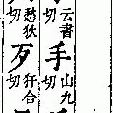 云者切
手
山九切
狄切
歹
合切